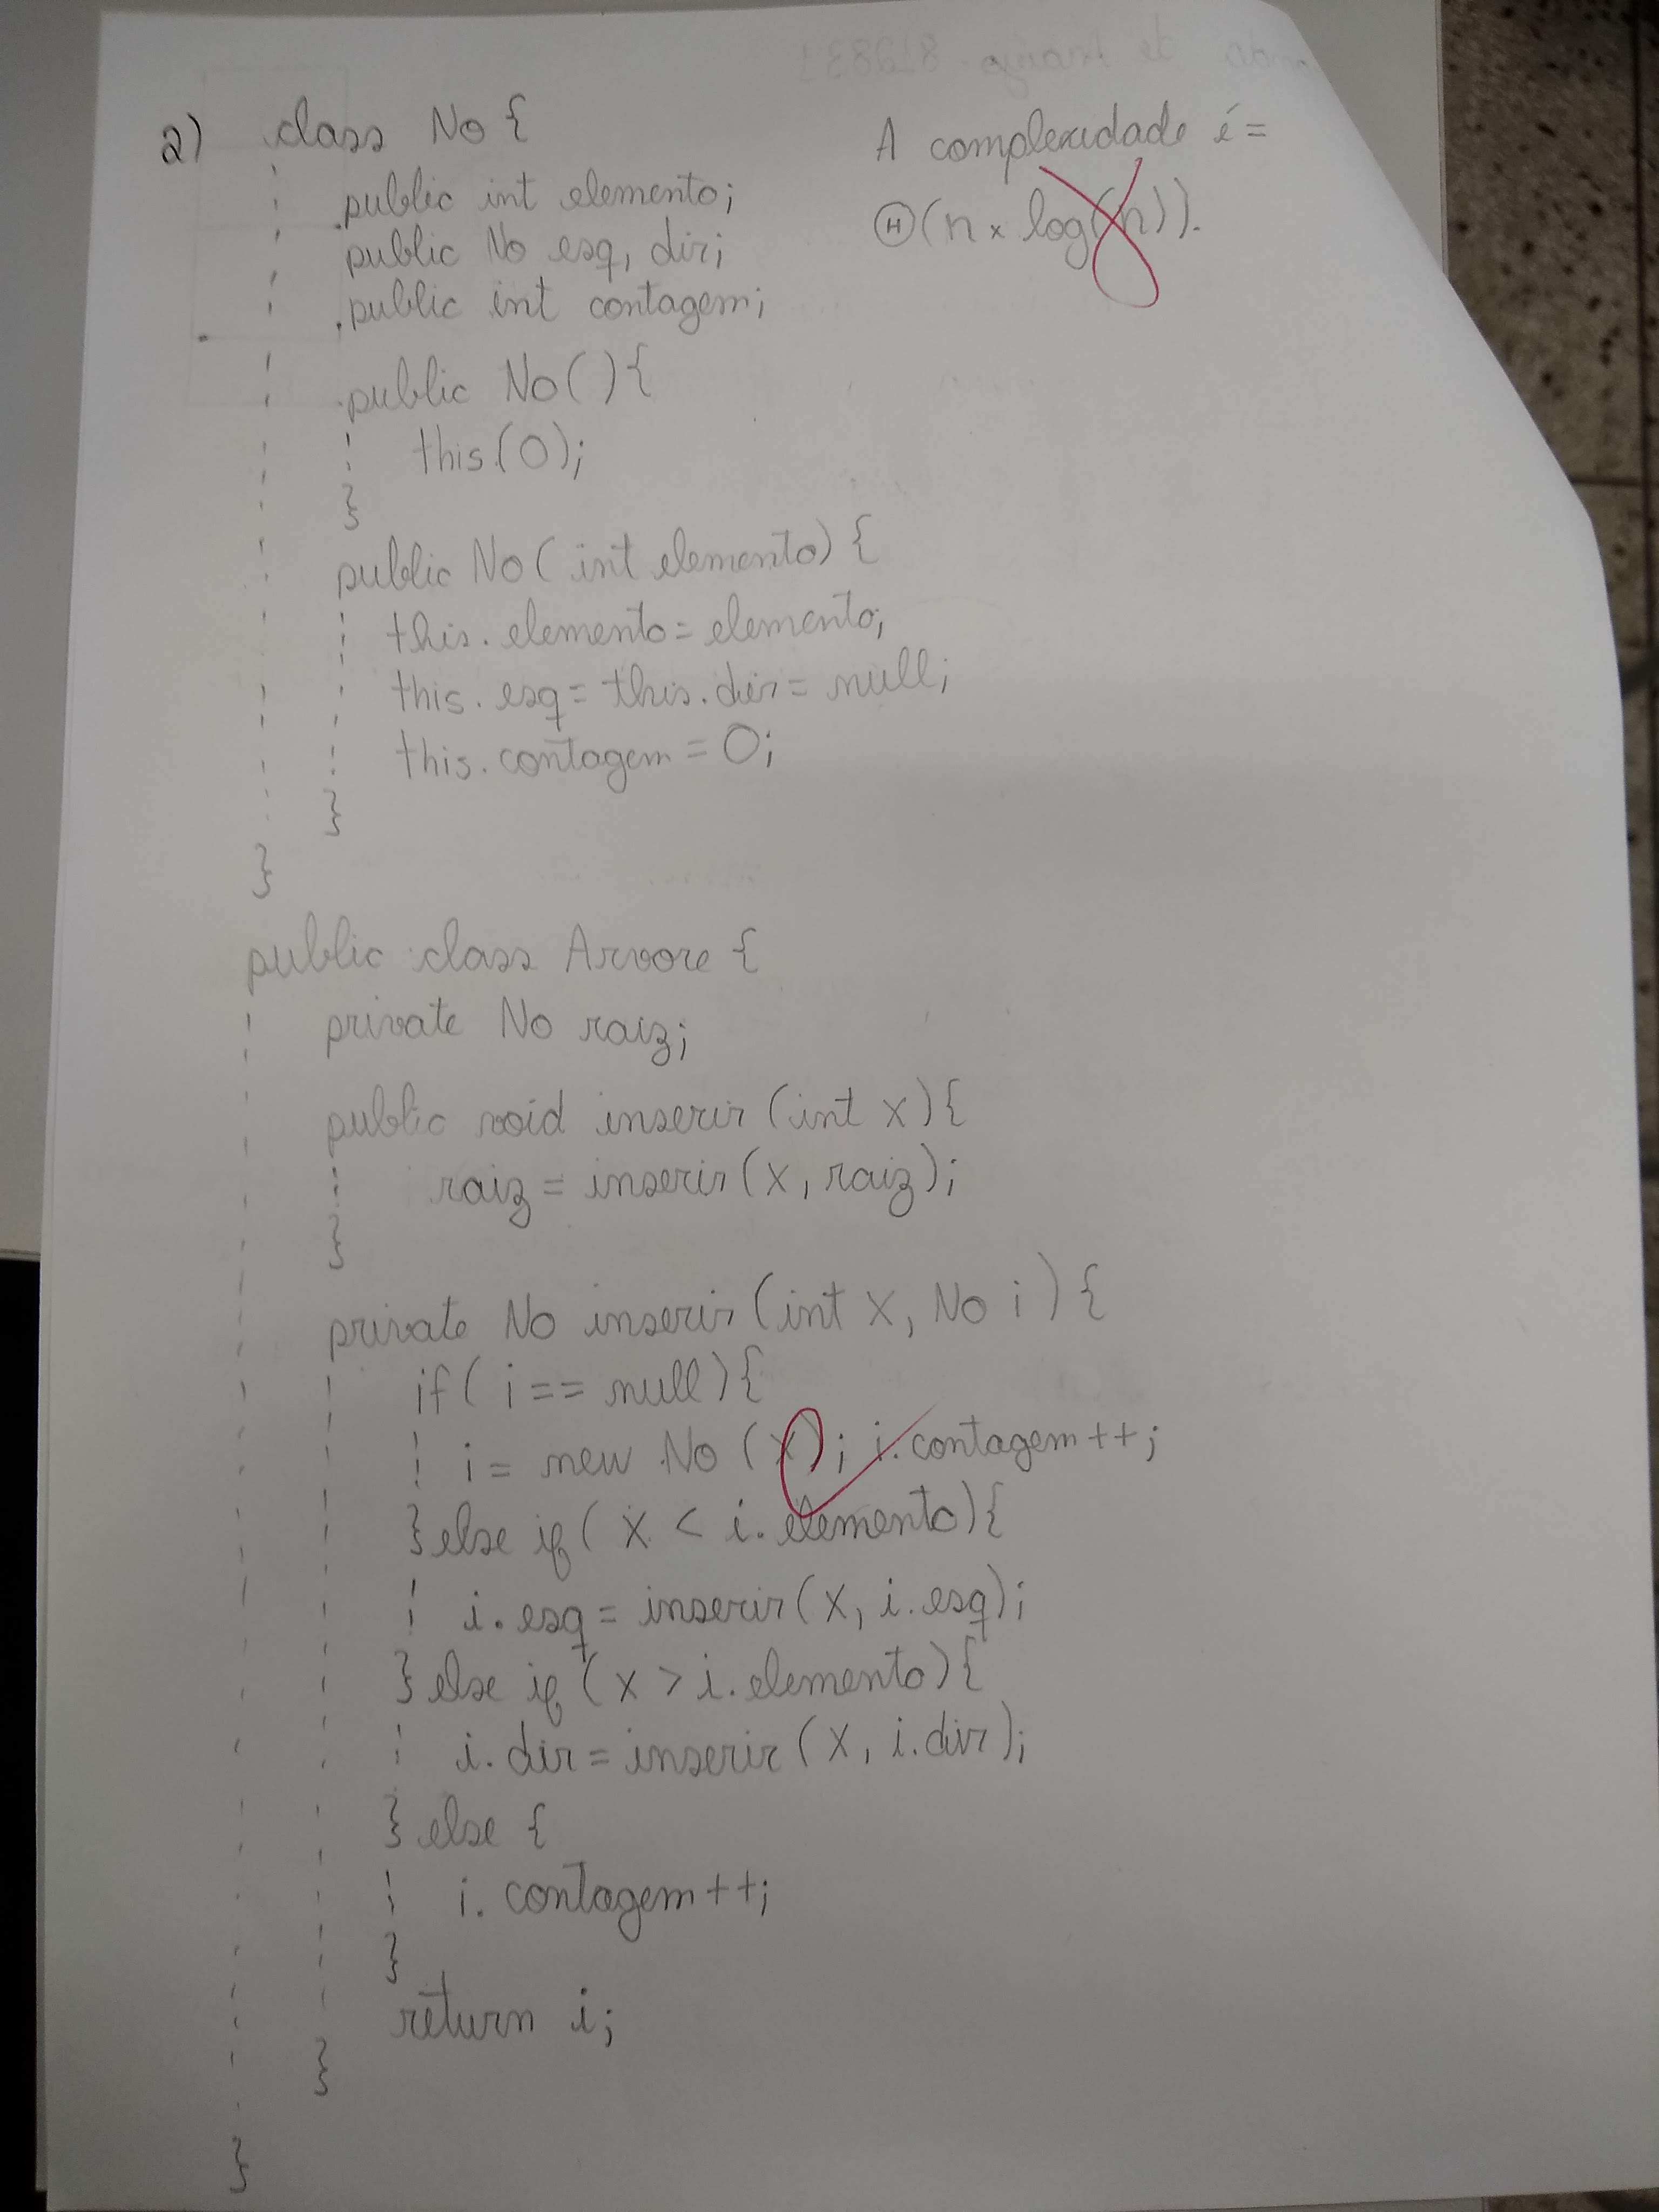 2) class No {
public int elemento;
public No esq, dir;
public int contagem;
public No(){
this.(0);
}
public No(int elemento){
this.elemento = elemento;
this.esq = this.dir = null;
this.contagem = 0;
}
}
A complexidade é =
Θ(n × log(n)).
public class Arvore {
private No raiz;
public void inserir(int x){
raiz = inserir(x, raiz);
}
private No inserir(int x, No i){
if( i == null){
i = new No (x); i.contagem++;
}else if( x < i.elemento){
i.esq = inserir(x, i.esq);
}else if (x > i.elemento){
i.dir = inserir(x, i.dir);
}else {
i.contagem++;
}
return i;
}
}